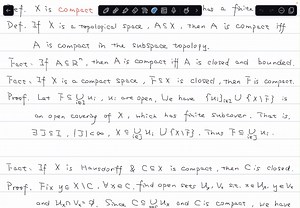 Def. X is compact has a finite
Def. If X is a topological space, A ⊆ X, then A is compact iff
A is compact in the subspace topology.
Fact. If A ⊆ ℝⁿ, then A is compact iff A is closed and bounded.
Fact. If X is a compact space, F ⊆ X is closed, then F is compact.
Proof. Let F ⊆ ⋃_{i∈I} Uᵢ, Uᵢ are open. We have {Uᵢ}_{i∈I} ∪ {X \ F} is
an open covering of X, which has finite subcover. That is,
∃ J ⊆ I, |J| < ∞, X ⊆ ⋃_{i∈J} Uᵢ ∪ (X \ F). Thus F ⊆ ⋃_{i∈J} Uᵢ.
Fact. If X is Hausdorff & C ⊆ X is compact, then C is closed.
Proof. Fix y ∈ X \ C, ∀ x ∈ C, find open sets Uₓ, Vₓ st. x ∈ Uₓ, y ∈ Vₓ
and Uₓ ∩ Vₓ = ∅. Since C ⊆ ⋃ Uₓ and C is compact, we have